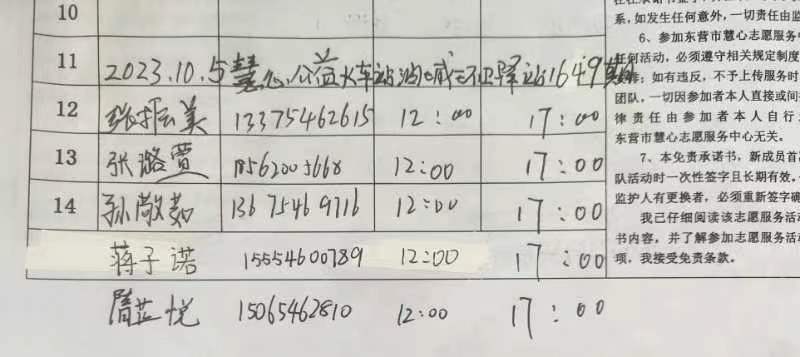 10
11 2023.10.5慧心公益火车站
12 张振美 13375462615 12:00 17:00
13 张潞萱 18562005668 12:00 17:00
14 孙敬茹 13675469716 12:00 17:00
蒋子诺 15554600789 12:00 17:00
隋芷悦 15065462810 12:00 17:00
系,如发生任何意外,一切责任由监
6、参加东营市慧心志愿服务中
任何活动,必须遵守相关规定制度
如有违反,不予上传服务时
团队,一切因参加者本人直接或间接
律责任由参加者本人自行
东营市慧心志愿服务中心无关。
7、本免责承诺书,新成员首
队活动时一次性签字且长期有效。
监护人有更换者,必须重新签字确
我已仔细阅读该志愿服务活
书内容,并了解参加志愿服务活动
项,我接受免责条款。